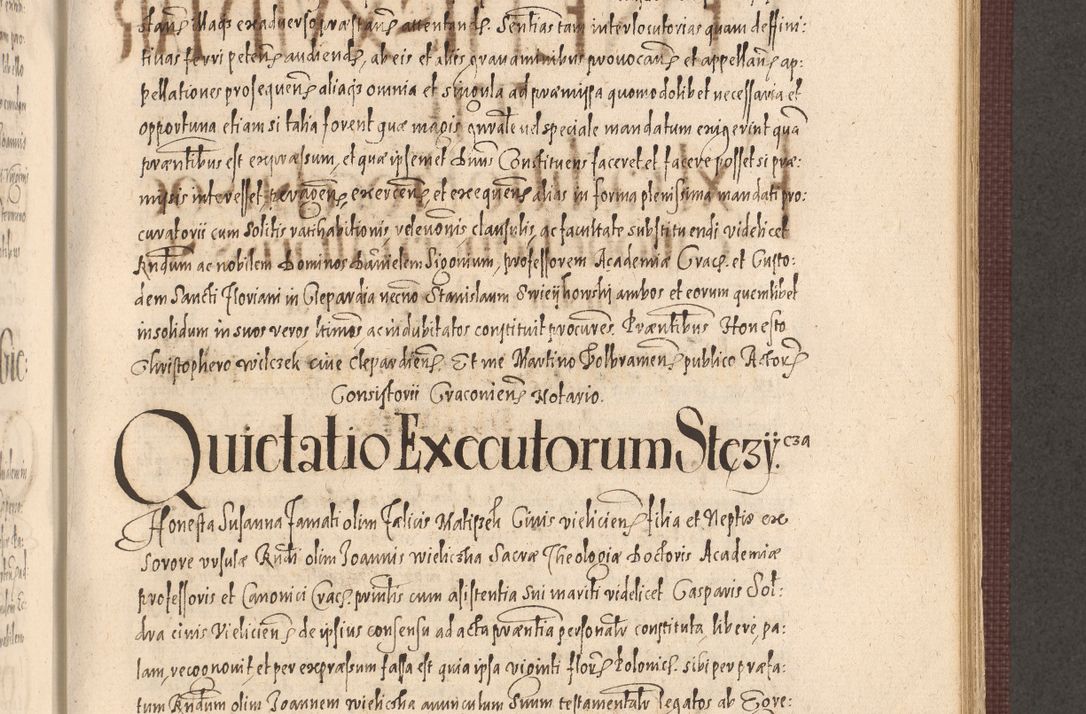 stanȩ illaqȩ ex adverso præstanȩ attentandȩ. Sentias tam interlocutorias quam deffini:
tiuas ferri petenȩ audiendȩ, ab eis et alijs grauaminibus prouocanȩ et appellanȩ ap:
pellationes prosequenȩ aliaqȩ omnia et singula ad præmissa quomodolibet necessaria et
opportuna etiam si talia forent quæ magis gnrale uel speciale mandatum exigerint quã
præntibus est expræsum, et quæ ipsemet Dnus Constituens faceret et facere posset si præ:
missis interesset, peragenȩ, exercenȩ, et exequenȩ alias in forma plenissima mandati pro:
curatorii cum solitis ratihabitionis, releuonis, clausulis, ac facultate substituendi videlicet
Rndum ac nobilem Dominos Danielem Sigonium, professorem Academiæ Cracȩ. et Custo:
dem Sancti Floriani in Clepardia necnõ Stanislaum Swieijkowski ambos et eorum quemlibet
in solidum in suos veros ltimos ac indubitatos constituit procures. Præntibus Honesto
Christophero wilczek ciue Clepardienȩ. Et me Martino Wolbramenȩ publico Actorȩ
Consistorii Cracouienȩ Notario.
Quietatio Executorum Stęzÿ.cza
Honesta Susanna famati olim Fælicis Matiszek Ciuis vielicienȩ filia et Neptis ex
Sorore vrsulæ Rndi olim Joannis wieliczka Sacræ Theologiæ Doctoris Academiæ
professoris et Canonici Cracȩ. printis cum asistentia sui mariti videlicet Gasparis Sol:
dra ciuis Vielicienȩ de ipsius consensu ad acta præntia personalr constituta, libere, pa:
lam, recognouit et per expræsum fassa est quia ipsa viginti florȩ Polonicȩ. sibi per præfa:
tum Rndum olim Joannem wieliczka auunculum suum testamentalr legatos ab Gore: